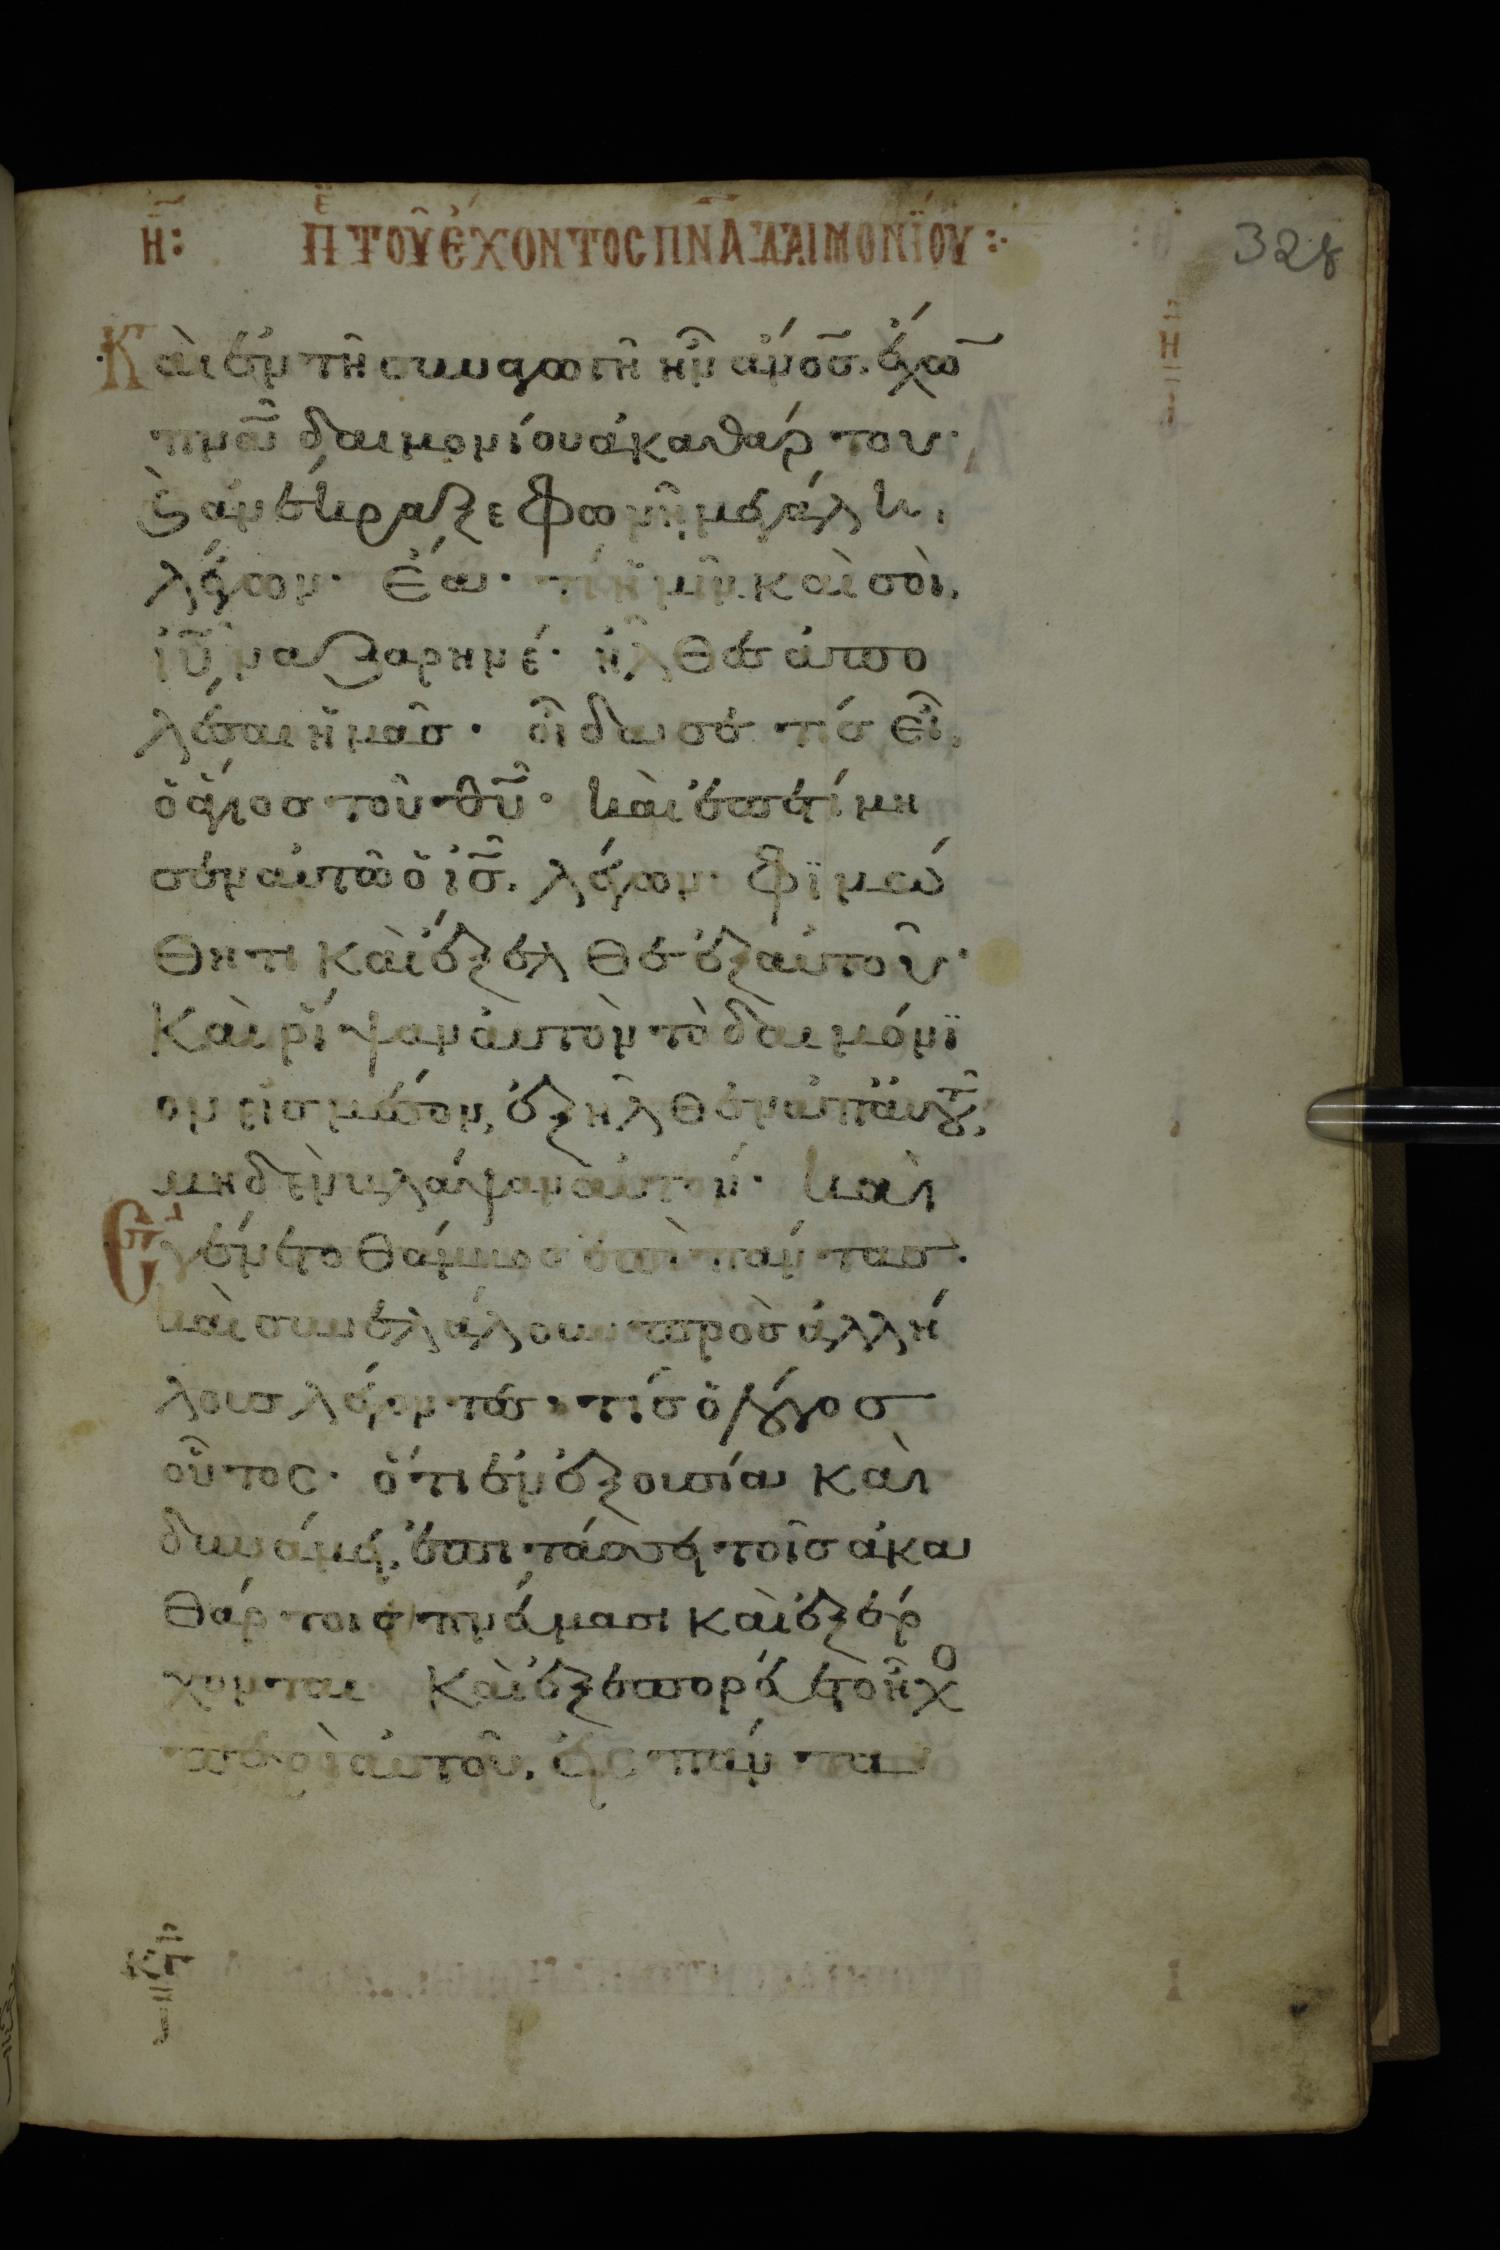 η: πε τοῦ ἔχοντος πνα δαιμονΐου :· 328
Καὶ ἐν τῆ συναγωγῆ ἦν ἀνοσ. ἔχω
πνα δαιμονίου ἀκαθάρτου·
καὶ ἀνέκραξε φωνῆ μεγάλη,
λέγων· ἔα· τί ἡμῖν καὶ σοὶ,
ἰῦ ναζαρηνέ· ἦλθεσ ἀπο
λέσαι ἡμᾶσ· οἶδα σε τίσ εἶ,
ὁ ἅγιοσ τοῦ θῦ· καὶ ἐπετίμη
σεν αὐτῶ ὁ ἰσ. λέγων· φϊμώ
θητι καὶ ἔξελθε ἐξ αὐτοῦ·
Καὶ ῥίψαν αὐτὸν τὸ δαιμόνϊ
ον εἰσ μέσον, ἐξῆλθεν ἀπ αὐτοῦ,
μηδὲν βλάψαν αὐτόν· καὶ
Εγένετο θάμβοσ ἐπὶ πάντασ.
καὶ συνελάλουν πρὸσ ἀλλή
λουσ λέγοντεσ· τίσ ὁ λόγοσ
οὗτος· ὅτι ἐν ἐξουσία καὶ
δυνάμει, ἐπιτάσσει τοῖσ ἀκα
θάρτοισ πνεύμασι καὶ ἐξέρ
χονται Καὶ ἐξεπορεύετο ἦχο
περὶ αὐτοῦ, εἰς πάντα